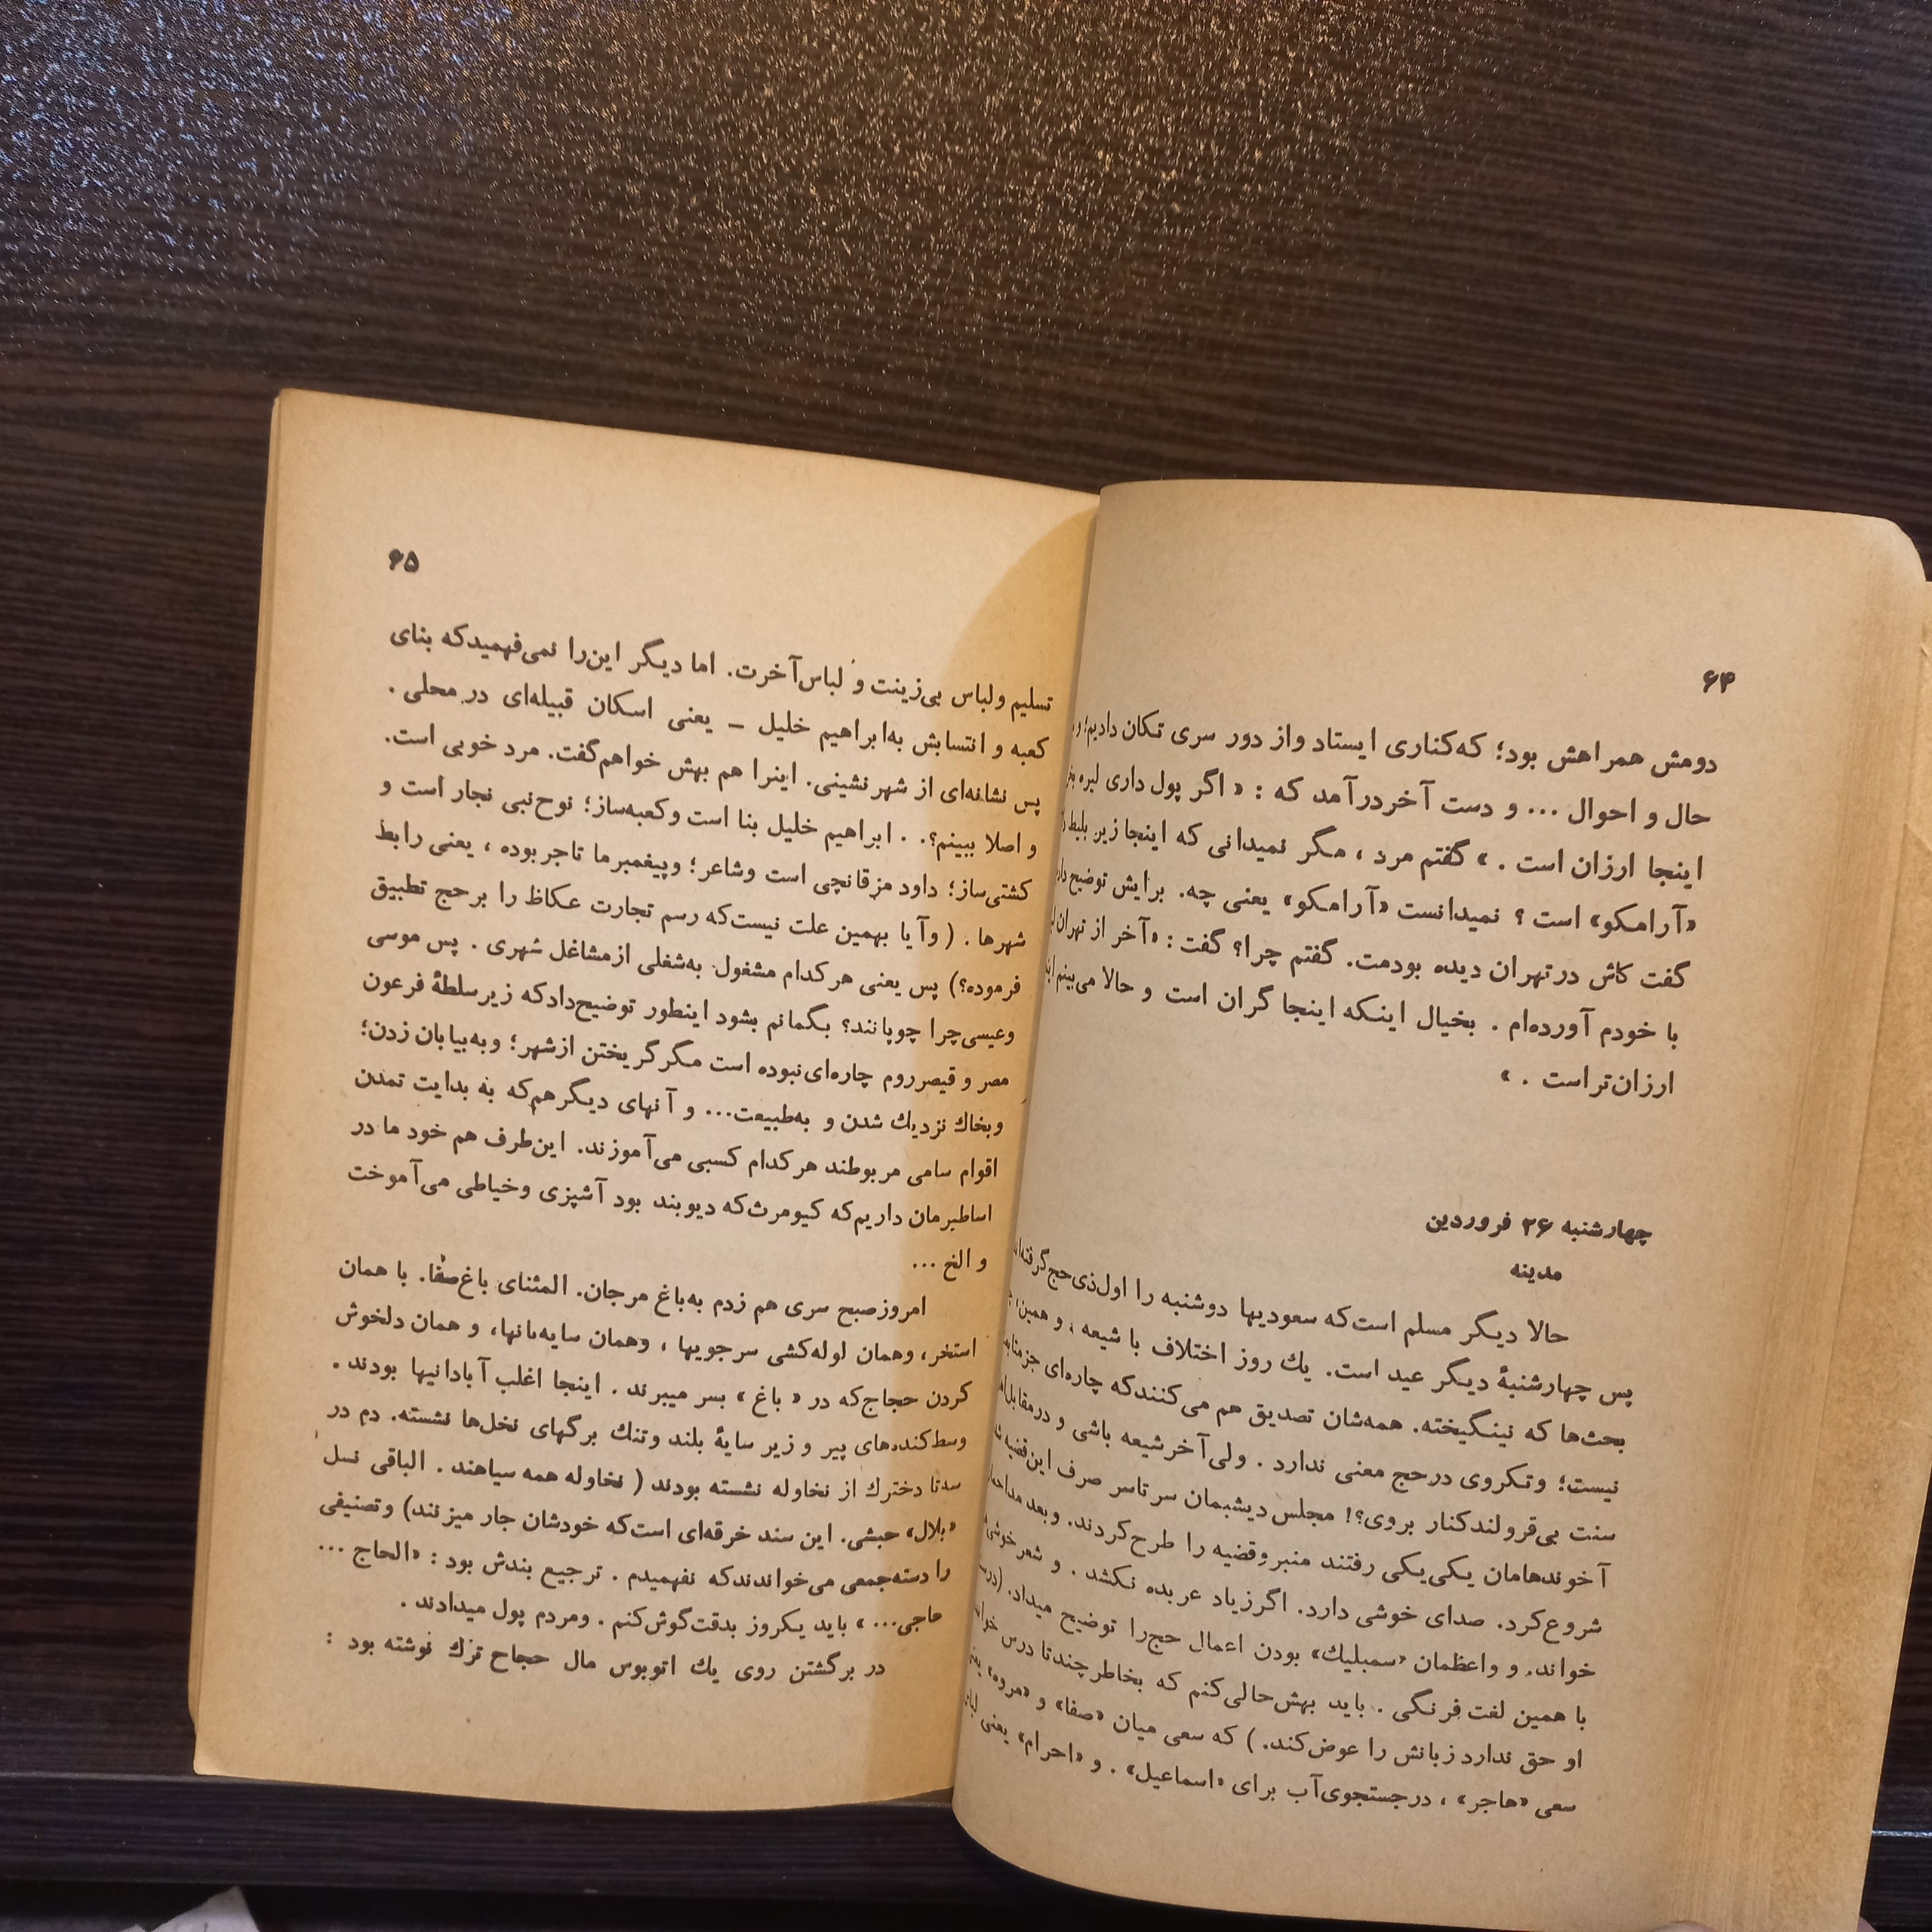 ۶۴
دومش همراهش بود؛ که‌کناری ایستاد واز دور سری تکان دادیم؛ و
حال و احوال ... و دست آخردرآمد که : « اگر پول داری لیره
اینجا ارزان است . » گفتم مرد ، مگر نمیدانی که اینجا زیر بلیط
«آرامکو» است ؟ نمیدانست «آرامکو» یعنی چه. برایش توضیح
گفت کاش درتهران دیده بودمت. گفتم چرا؟ گفت : «آخر از تهران
با خودم آورده‌ام . بخیال اینکه اینجا گران است و حالا می‌بینم
ارزان‌تراست . »
چهارشنبه ۲۶ فروردین
مدینه
حالا دیگر مسلم است‌که سعودیها دوشنبه را اول‌ذی‌حج‌گرفته‌اند
پس چهارشنبهٔ دیگر عید است. یك روز اختلاف با شیعه ، و همین،
بحث‌ها که نینگیخته. همه‌شان تصدیق هم می‌کنندکه چاره‌ای جز
نیست؛ وتکروی درحج معنی ندارد . ولی‌آخرشیعه باشی و درمقابل
سنت بی‌قرولندکنار بروی؟! مجلس دیشبمان سرتاسر صرف این‌قضیه
آخوندهامان یکی‌یکی رفتند منبروقضیه را طرح‌کردند. وبعد
شروع‌کرد. صدای خوشی دارد. اگرزیاد عربده نکشد . و شعر
خواند. و واعظمان «سمبلیك» بودن اعمال حج‌را توضیح میداد.
با همین لغت فرنگی . باید بهش‌حالی‌کنم که بخاطر چندتا درس
او حق ندارد زبانش را عوض‌کند.) که سعی میان «صفا» و «مروه»
سعی «هاجر» ، درجستجوی‌آب برای «اسماعیل» . و «احرام» یعنی
۶۵
تسلیم ولباس بی‌زینت و لباس‌آخرت. اما دیگر این‌را نمی‌فهمیدکه بنای
کعبه و انتسابش به‌ابراهیم خلیل – یعنی اسکان قبیله‌ای در محلی .
پس نشانه‌ای از شهرنشینی. اینرا هم بهش خواهم‌گفت. مرد خوبی است.
و اصلا ببینم؟. . ابراهیم خلیل بنا است وکعبه‌ساز؛ نوح‌نبی نجار است و
کشتی‌ساز؛ داود مزقانچی است وشاعر؛ وپیغمبرما تاجر بوده ، یعنی رابط
شهرها . ( وآیا بهمین علت نیست‌که رسم تجارت عکاظ را برحج تطبیق
فرموده؟) پس یعنی هرکدام مشغول به‌شغلی ازمشاغل شهری . پس موسی
وعیسی‌چرا چوپانند؟ بگمانم بشود اینطور توضیح‌دادکه زیرسلطهٔ فرعون
مصر و قیصرروم چاره‌ای‌نبوده است مگرگریختن ازشهر؛ وبه‌بیابان زدن؛
وبخاك نزدیك شدن و به‌طبیعت... و آنهای دیگرهم‌که به بدایت تمدن
اقوام سامی مربوطند هرکدام کسبی می‌آموزند. این‌طرف هم خود ما در
اساطیرمان داریم‌که کیومرث‌که دیوبند بود آشپزی وخیاطی می‌آموخت
و الخ ...
امروزصبح سری هم زدم به‌باغ مرجان. المثنای باغ‌صفا. با همان
استخر، وهمان لوله‌کشی سرجویها ، وهمان سایه‌بانها، و همان دلخوش
کردن حجاج‌که در « باغ » بسر میبرند . اینجا اغلب آبادانیها بودند .
وسط‌کنده‌های پیر و زیر سایهٔ بلند وتنك برگهای نخل‌ها نشسته. دم در
سه‌تا دخترك از نخاوله نشسته بودند ( نخاوله همه سیاهند . الباقی نسل
«بلال» حبشی. این سند خرقه‌ای است‌که خودشان جار میزنند) وتصنیفی
را دسته‌جمعی می‌خواندندکه نفهمیدم . ترجیع بندش بود : «الحاج ...
حاجی... » باید یکروز بدقت‌گوش‌کنم . ومردم پول میدادند .
در برگشتن روی یك اتوبوس مال حجاج ترك نوشته بود :